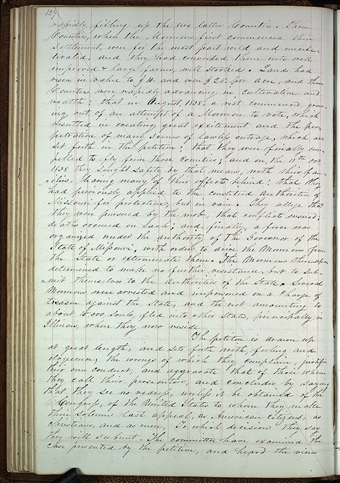 137
rapidly filling up the two latter Counties. These
Counties, when the Mormons first commenced their
Settlement, were for the most part wild and uncul-
tivated, and they had converted them into well
improved & large farms, well stocked. Lands had
risen in value to $10. and even $25. per acre, and these
Counties were rapidly advancing in cultivation and
wealth; that in August, 1838. a riot commenced, grow-
ing out of an attempt of a Mormon to vote, which
resulted in creating great excitement and the per-
petration of many scenes of lawless outrage, which are
set forth in the petition; that they were finally com-
pelled to fly from those counties; and on the 11th
1838 they sought safety by that means, with their fam-
ilies, leaving many of their effects behind; that they
had previously applied to the constituted authorities of
Missouri for protection, but in vain. They allege that
they were pursued by the mob; that conflicts ensued;
deaths occurred on each; and finally, a force was
organized under the authority of the Governor of the
State of Missouri, with orders to drive the Mormons from
the State or exterminate them. The Mormons thereupon
determined to make no further resistance, but to Sub-
mit themselves to the Authorities of the State. Several
Mormons were arrested and imprisoned on a Charge of
treason against the State; and the rest amounting to
about Souls, fled into other States, principally in
Illinois, where they now reside.
The petition is drawn up
at great length, and sets forth with feeling and
eloquence, the wrongs of which they complain; justifies
their own conduct, and aggravate that of those whom
they call their persecutors, and concludes by saying
that they see no redress, unless it be obtained of the
Congress of the United States, to whom they make
their solemn last appeal, as American citizens, as
Christians, and as men; To which decision they say
they will submit. The committee have examined the
case presented by the petition, and heard the views